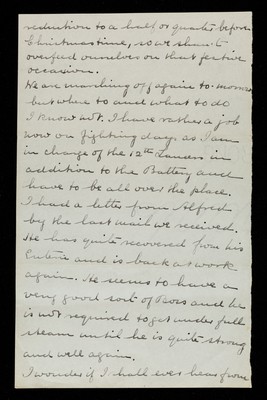 reduction to a half or quarter before
Christmas time, so we shan't
overfeed ourselves on that festive
occasion.
We are marching off again to-morrow
but where to and what to do
I know not. I have rather a job
now on fighting days as I am
in charge of the 12th Lancers in
addition to the Battery and
have to be all over the place.
I had a letter from Alfred
by the last mail we received.
He has quite recovered from his
Enteric and is back at work
again. He seems to have a
very good sort of Boss and he
is not required to get under full
steam until he is quite strong
and well again.
I wonder if I shall ever hear from